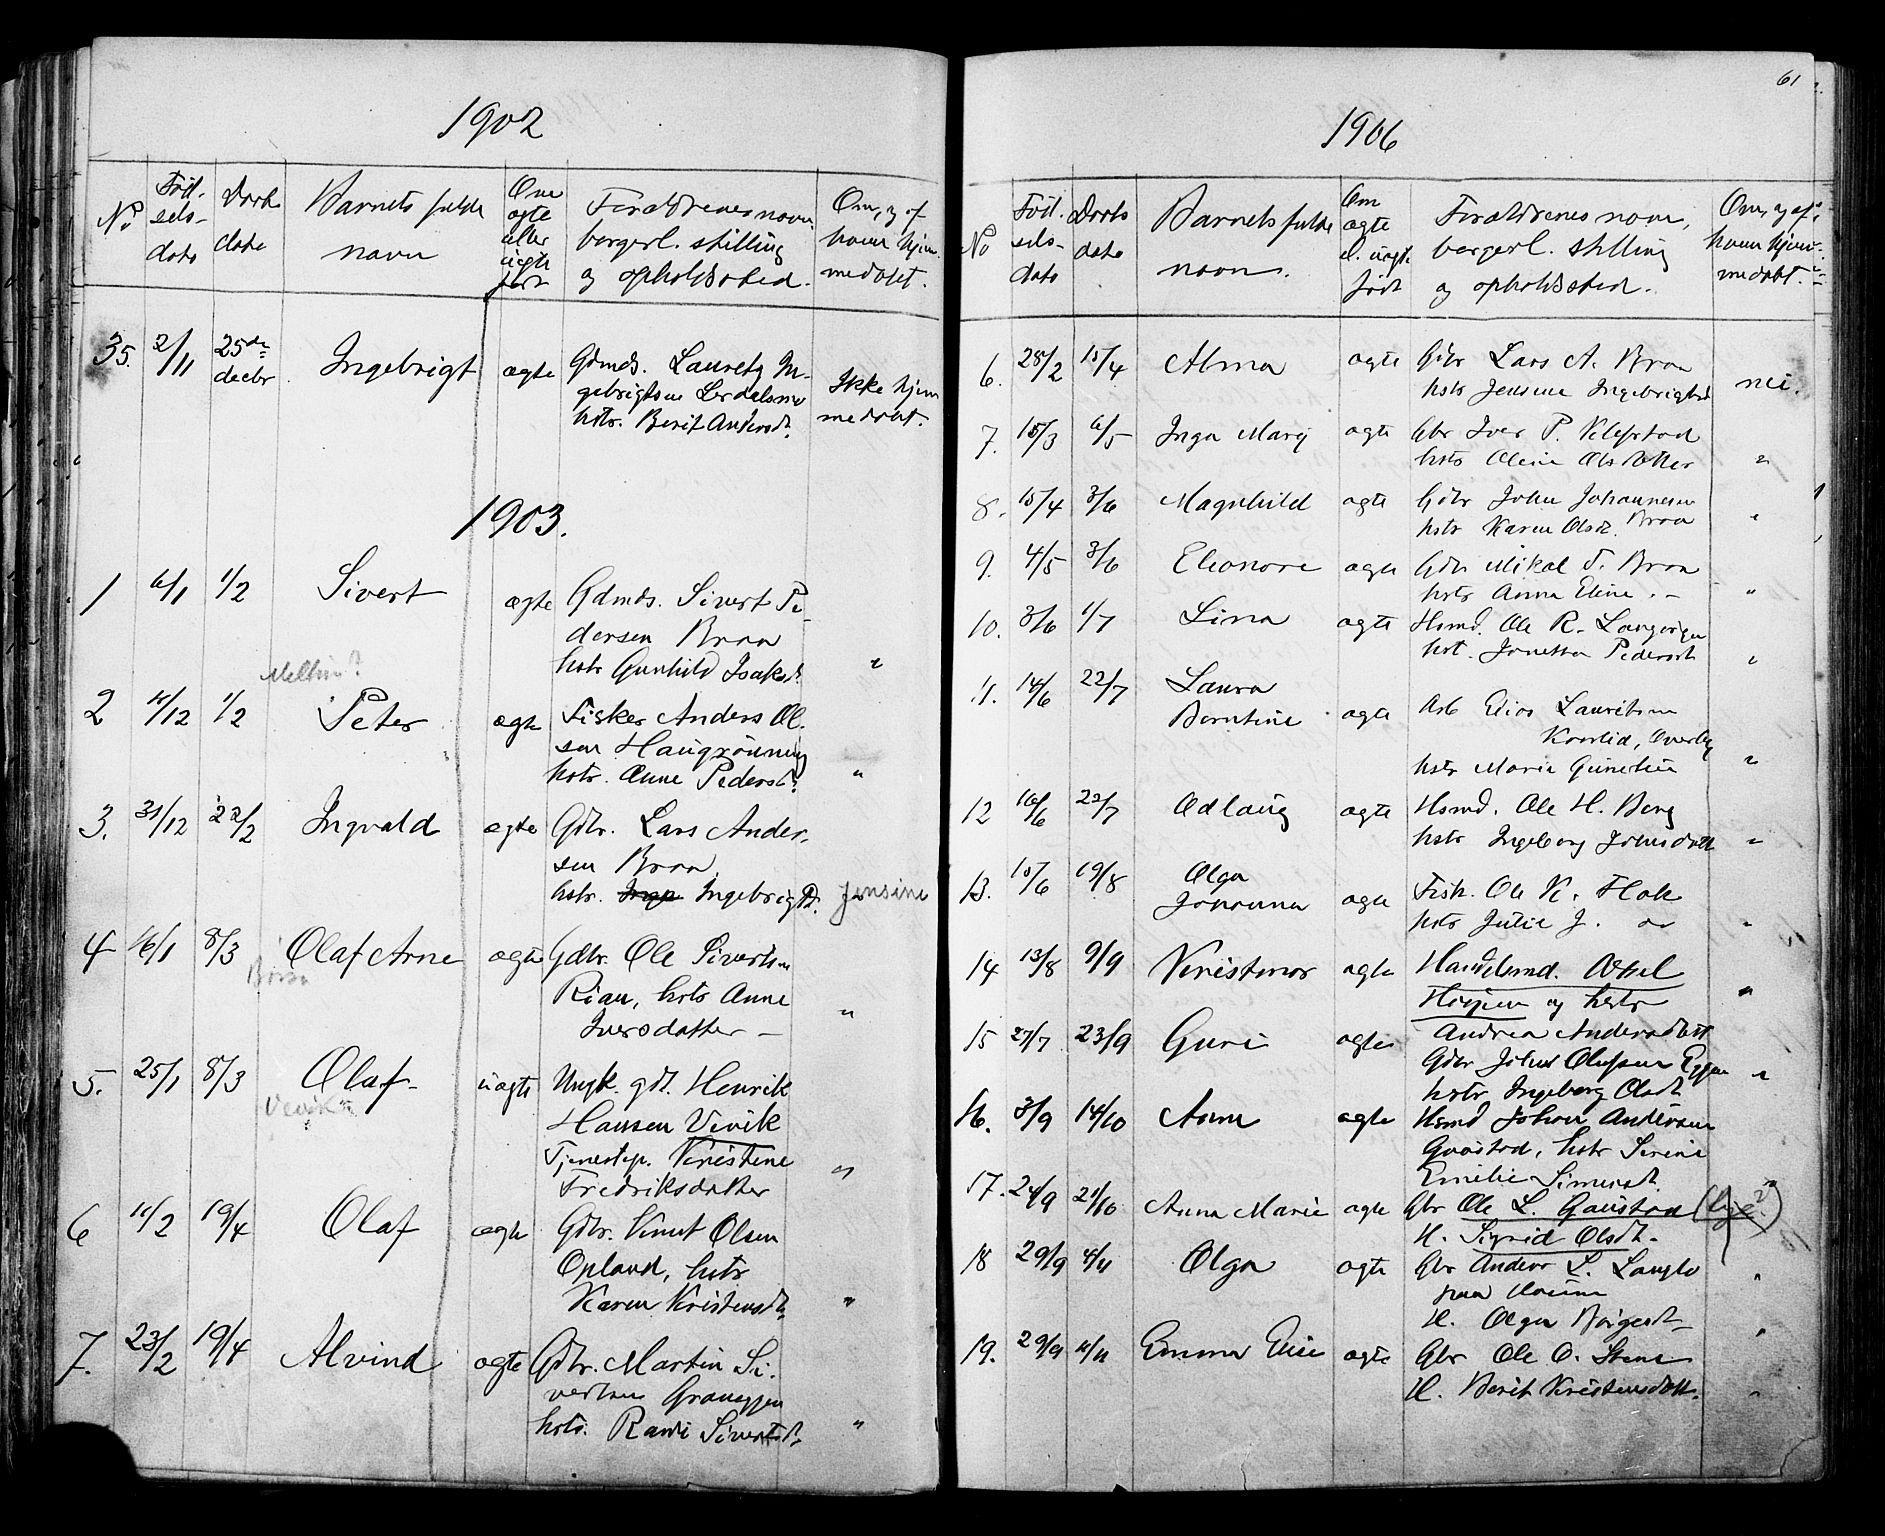 1902
No
Död-
sels-
dato
Daab
dato
Barnets fulde
navn
Om
ægte
eller
uægte
født
Forældrenes navn
borgerl. stilling
og opholdssted.
Om, og af
hvem hjem-
medøbt.
35. 2/11 25de decbr. Ingebrigt ægte Gdmds. Lauretz In-
gebrigtsen
hstr. Berit Andersdt.
Ikke hjem
medøbt.
1903.
1 6/1 1/2 Sivert ægte Gdmds. Sivert Pe-
dersen Braa
hstr Gunhild Isaksdt. "
2 11/12 1/2 Peter ægte Fisker Anders Ol-
sen Haugrönning
hstr. Anne Pedersdt. "
3. 31/12 22/2 Ingvald ægte Gdbr. Lars Ander-
sen Braa
hstr. Ingebrigtsdt. Jensine
4 16/1 8/3 Olaf Arne ægte Gdbr. Ole Sivertsen
Börsa
Rian, hstr Anne
Iversdatter – "
5. 25/1 8/3 Olaf uægte Ungk. gdt. Henrik
Vivik
Hansen Vivik
Tjenestep. Kristine
Fredriksdatter "
6 11/2 19/4 Olaf ægte Gdbr. Knut Olsen
Opland, hstr
Karen Kristensdt. "
7. 23/2 19/4 Alvind ægte Gdbr. Martin Si-
vertsen
hstr. Randi Sivertsdt. "
61
1906
No
Död-
sels-
dato
Daabs
dato
Barnets fulde
navn.
Om
ægte
el. uægte
født
Forældrenes navn,
borgerl. stilling
og opholdssted.
Om, og af
hvem hjem-
medøbt.
6. 28/2 15/4 Alma ægte Gdbr Lars A. Braa
hstr Jensine Ingebrigtsd nei.
7. 15/3 6/5 Inga Marij ægte Gbr Iver P.
hstr Oline Olsdatter "
8. 15/4 3/6 Magnhild ægte Gdbr John Johannesen
hstr Karen Olsdt. Braa "
9. 4/5 3/6 Eleonore ægte Gdbr Mikal T. Braa
hstr Anna Eline. – "
10. 3/6 1/7 Lina ægte Hsmd. Ole R.
hst. Janetta Pedersdt "
11. 14/6 22/7 Laura
Berntine ægte Arb Elias Lauritsen
hstr Maria "
12 16/6 22/7 Odlaug ægte Hsmd. Ole H. Berg
hstr Ingeborg Johnsdatt "
13. 15/6 19/8 Olga
Johanna ægte Fisk. Ole K. Flak
hstr Julie J. "
14 13/8 9/9 Kristmor ægte Handelsmd. Aksel
og hstr
Andrea Andersdatt "
15 27/7 23/9 Guri ægte Gdbr Johns Olufsen Eggen
hstr Ingeborg Olsdt "
16. 3/9 14/10 Anne ægte Hsmd Johan Andersen
Gaustad, hstr Serine
Emilie Simensdt.
17. 24/9 21/10 Anna Marie ægte Gbr Ole L. Gaustad
H. Sigrid Olsdt.
18 29/9 4/11 Olga ægte Gbr Anders L. Langlo
paa
H. Olga Börgesdt "
19. 29/9 11/11 Emma Elise ægte Gbr Ole O. Stene
H. Berit Kristensdatt. "